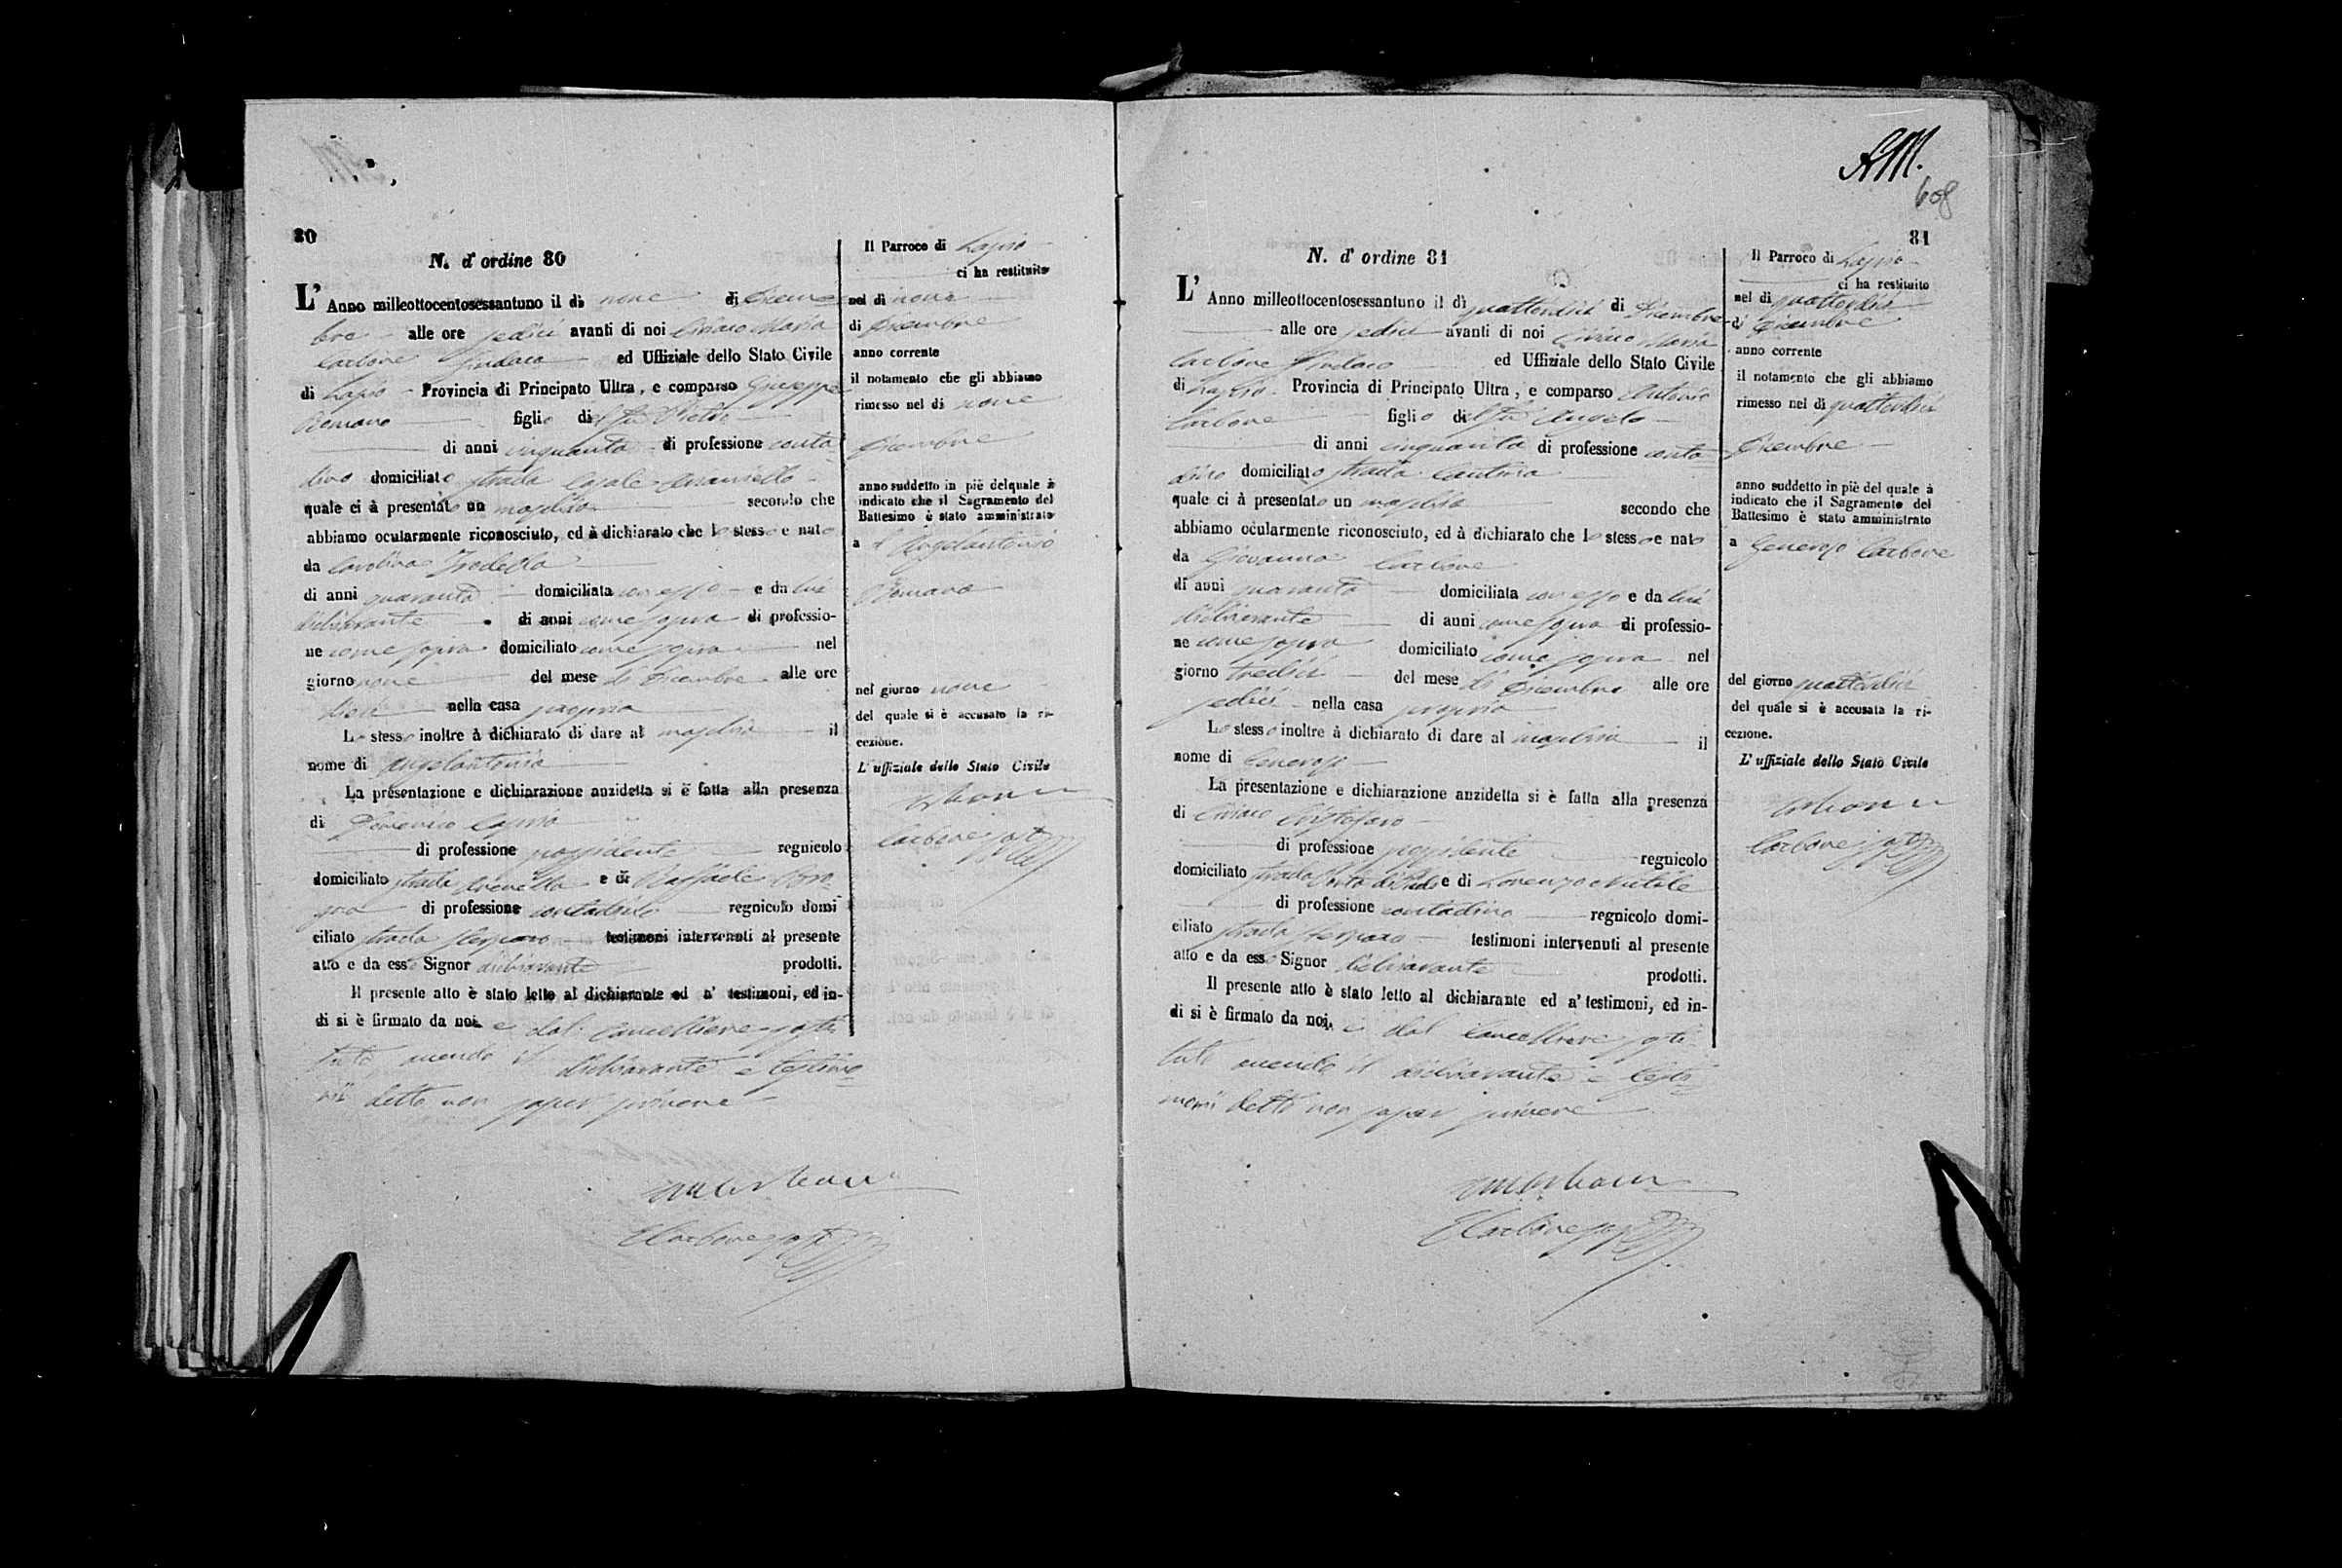 80
N. d'ordine 80
L'Anno milleottocentosessantuno il dì nove di Decem=
bre alle ore sedici avanti di noi Ciriaco Maria
Carbone Sindaco ed Uffiziale dello Stato Civile
di Lapio Provincia di Principato Ultra, e comparso Giuseppe
Romano figlio del fu
di anni cinquanta di professione conta
dino domiciliato strada Casale
quale ci à presentato un maschio secondo che
abbiamo ocularmente riconosciuto, ed à dichiarato che lo stesso e nato
da Carolina
di anni quaranta domiciliata con esso e da lui
dichiarante di anni come sopra di professio-
ne come sopra domiciliato come sopra nel
giorno nove del mese di Dicembre alle ore
dieci nella casa propria
Lo stesso inoltre à dichiarato di dare al maschio il
nome di Angelantonio
La presentazione e dichiarazione anzidetta si è fatta alla presenza
di Domenico
di professione possidente regnicolo
domiciliato strada e di Raffaele
di professione contadino regnicolo domi
ciliato strada testimoni intervenuti al presente
atto e da esso Signor dichiarante prodotti.
Il presente atto è stato letto al dichiarante ed a' testimoni, ed in-
di si è firmato da noi e dal Cancelliere sosti
tuto, avendo il dichiarante e testimo=
nii detto non saper scrivere
Carbone sost
Il Parroco di Lapio
ci ha restituito
nel dì nove
di Dicembre
anno corrente
il notamento che gli abbiamo
rimesso nel dì nove
Dicembre
anno suddetto in piè del quale à
indicato che il Sagramento del
Battesimo è stato amministrato
a Angelantonio
Romano
nel giorno nove
del quale si è accusato la ri-
cezione.
L'uffiziale dello Stato Civile
Carbone sost
AM.
608
81
N. d'ordine 81
L'Anno milleottocentosessantuno il dì quattordici di Dicembre
alle ore sedici avanti di noi Ciriaco Maria
Carbone Sindaco ed Uffiziale dello Stato Civile
di Lapio Provincia di Principato Ultra, e comparso Antonio
Carbone figlio del fu Angelo
di anni cinquanta di professione conta=
dino domiciliato strada
quale ci à presentato un maschio secondo che
abbiamo ocularmente riconosciuto, ed à dichiarato che lo stesso e nato
da Giovanna Carbone
di anni quaranta domiciliata con esso e da lui
dichiarante di anni come sopra di professio-
ne come sopra domiciliato come sopra nel
giorno tredici del mese di Dicembre alle ore
sedici nella casa propria
Lo stesso inoltre à dichiarato di dare al maschio il
nome di Generoso
La presentazione e dichiarazione anzidetta si è fatta alla presenza
di Ciriaco Cristofaro
di professione possidente regnicolo
domiciliato strada e di Lorenzo
di professione contadino regnicolo domi-
ciliato strada testimoni intervenuti al presente
atto e da esso Signor dichiarante prodotti.
Il presente atto è stato letto al dichiarante ed a' testimoni, ed in-
di si è firmato da noi, e dal Cancelliere sosti
tuto avendo il dichiarante e testi=
monii detto non saper scrivere
Carbone sost
Il Parroco di Lapio
ci ha restituito
nel dì quattordici
di Dicembre
anno corrente
il notamento che gli abbiamo
rimesso nel dì quattordici
Dicembre
anno suddetto in piè del quale à
indicato che il Sagramento del
Battesimo è stato amministrato
a Generoso Carbone
del giorno quattordici
del quale si è accusata la ri-
cezione.
L'uffiziale dello Stato Civile
Carbone sost